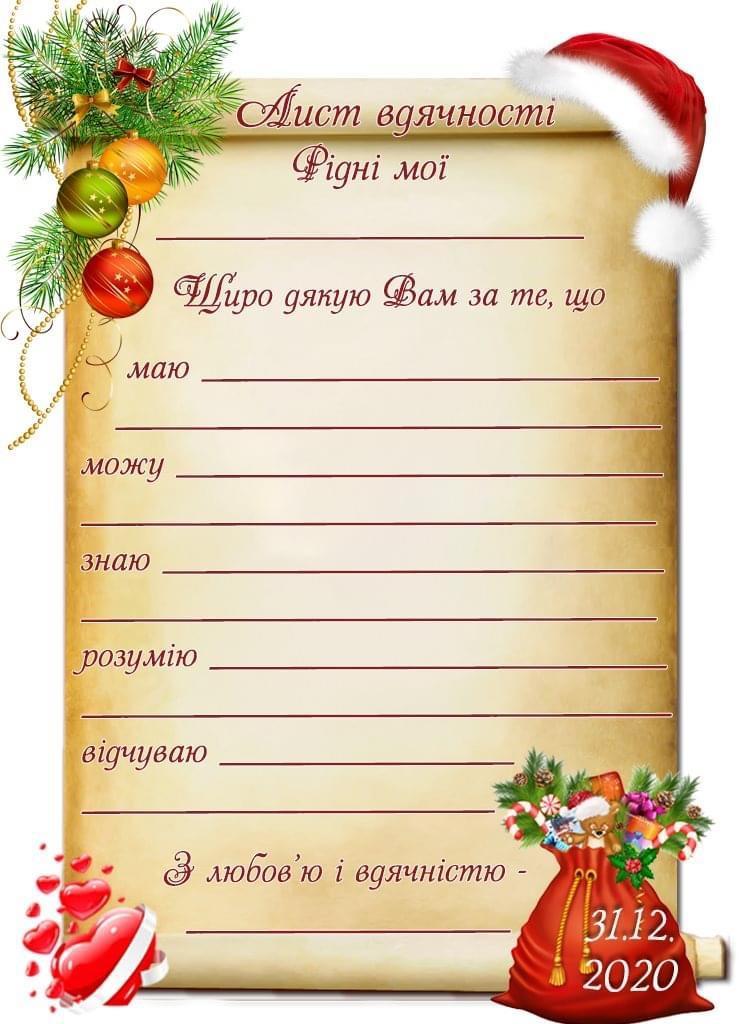 Лист вдячності
Рідні мої
Щиро дякую Вам за те, що
маю
можу
знаю
розумію
відчуваю
З любов'ю і вдячністю -
31.12.
2020